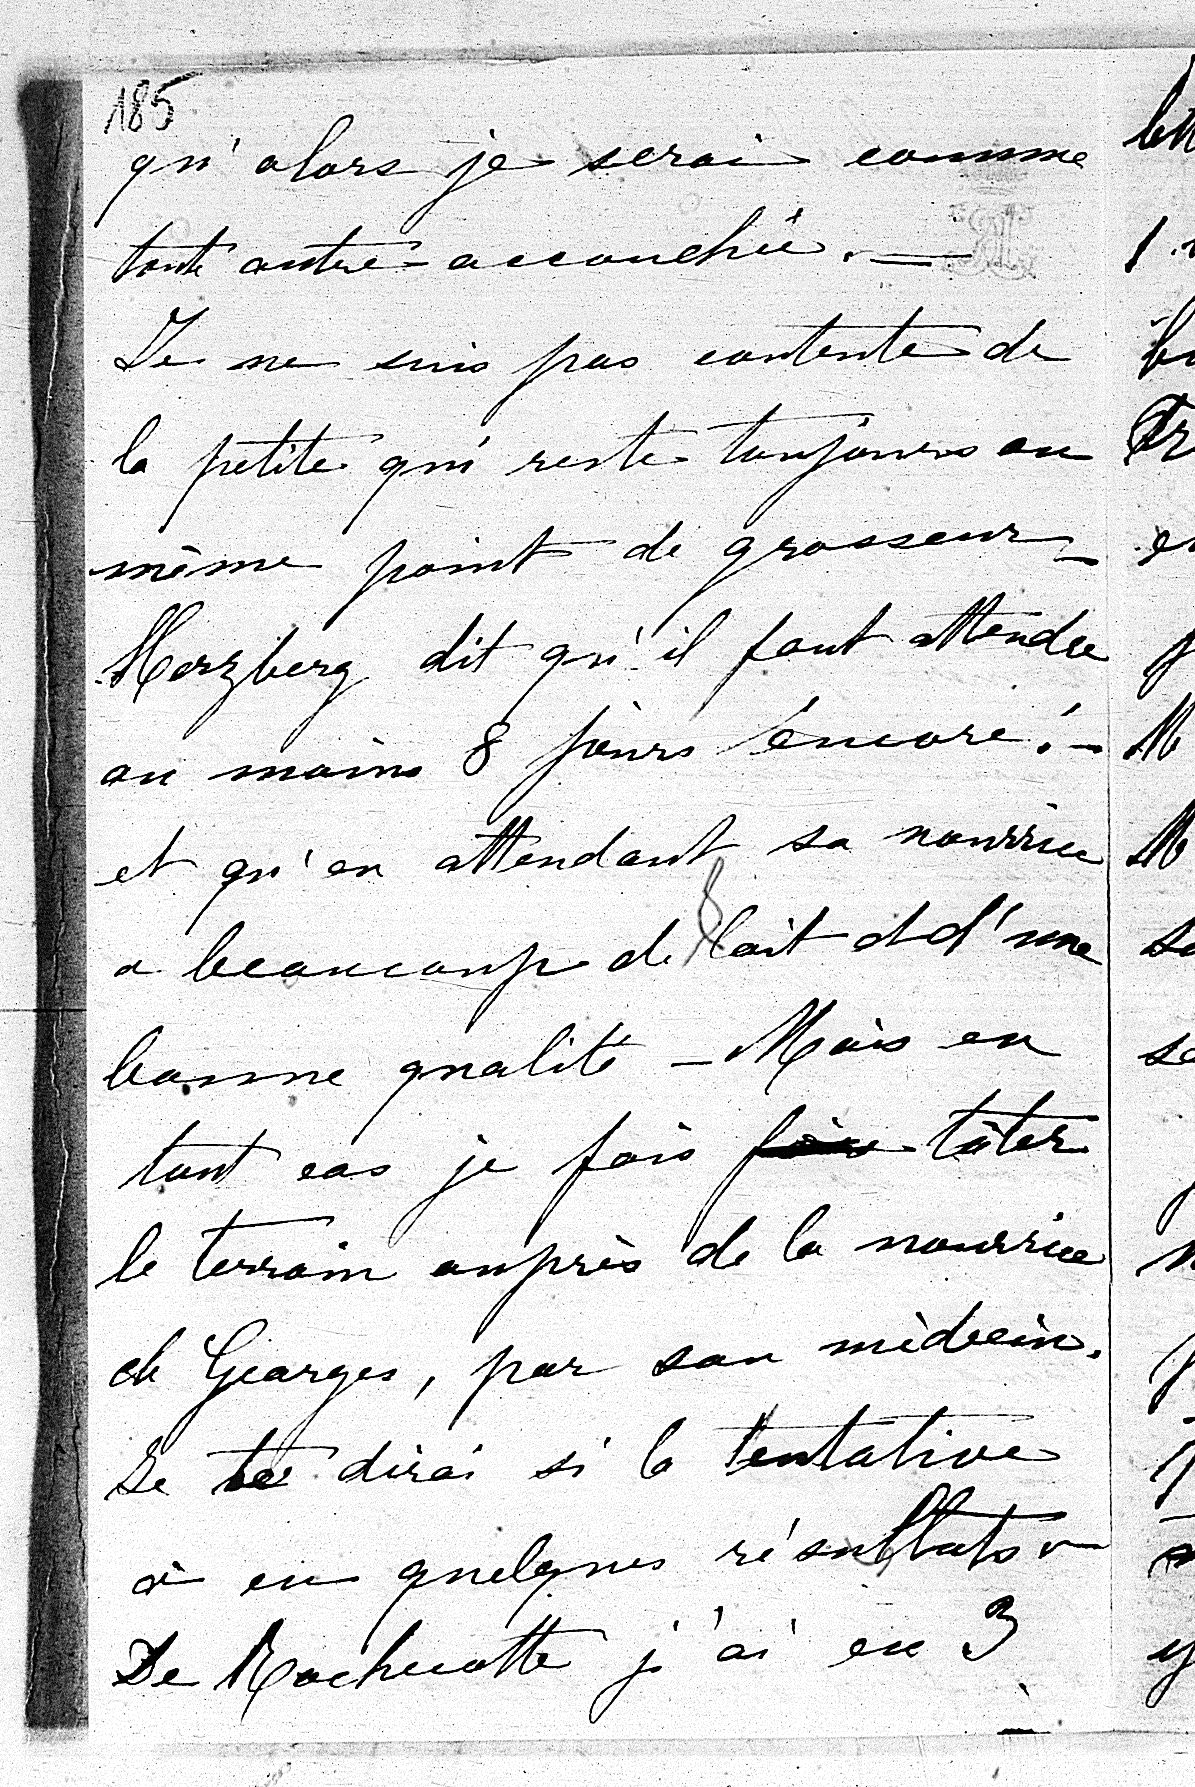 185
qu'alors je serai comme
toute autre accouchée. —
Je ne suis pas contente de
la petite qui reste toujours au
même point de grosseur —
Herzberg dit qu'il faut attendre
au moins 8 jours encore! —
et qu'en attendant sa nourrice
a beaucoup de lait et d'une
bonne qualité — Mais en
tout cas je fais faire tâter
le terrain auprès de la nourrice
de Georges, par son médecin.
Je te dirai si la tentative
a eu quelques résultats —
De Rochecotte j'ai eu 3